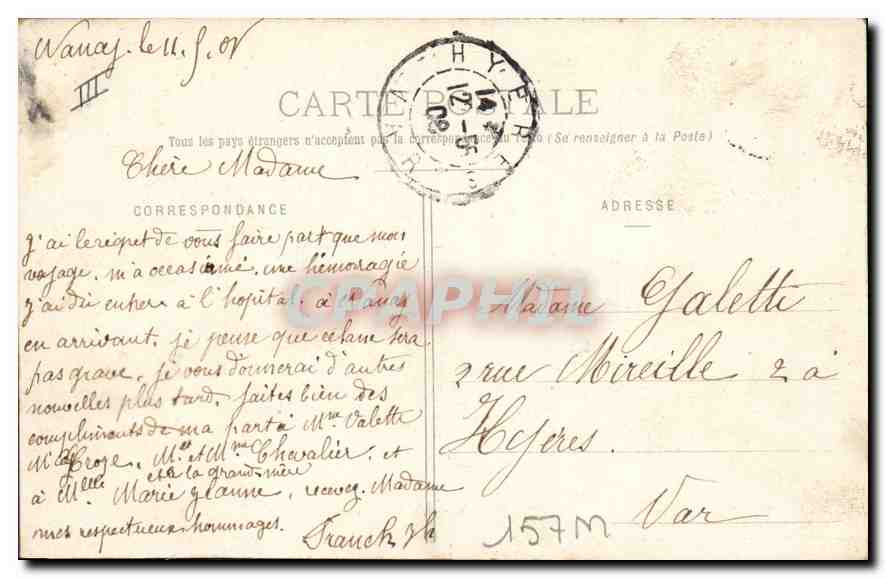 Nancy. le 11. 5. 08
III
CARTE POSTALE
Tous les pays étrangers n'acceptent pas la correspondance au recto (Se renseigner à la Poste)
HYERES
14
12-5
08
VAR
Chère Madame
CORRESPONDANCE
j'ai le regret de vous faire part que mon
voyage. m'a occasionné, une hémoragie
j'ai dû entrer à l'hopital. à Nancy
en arrivant. je pense que cela ne sera
pas grave. je vous donnerai d'autres
nouvelles plus tard. faites bien des
compliments de ma part à Mme Valette
Croze. Mr et Mme Chevalier. et
et à la grand-mère
à Melle Marie Jeanne, recevez. Madame
mes respectueux hommages.
Franck
ADRESSE
Madame Galette
2 rue Mireille 2 à
Hyères.
Var
157M
CPAPHIL